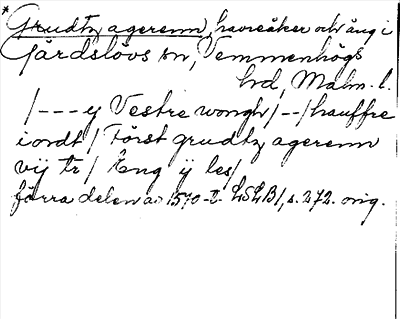 * Grudtz agerenn, havreåker och äng i
Gärdslövs sn, Vemmenhögs
hd, Malm. l.
/ - - - y Vestre wongh / - - / hauffre
iordt / Först grudtz agerenn
vij tr / Eng ij les /
förra delen av 1570-t. LSLB/, s. 272. orig.